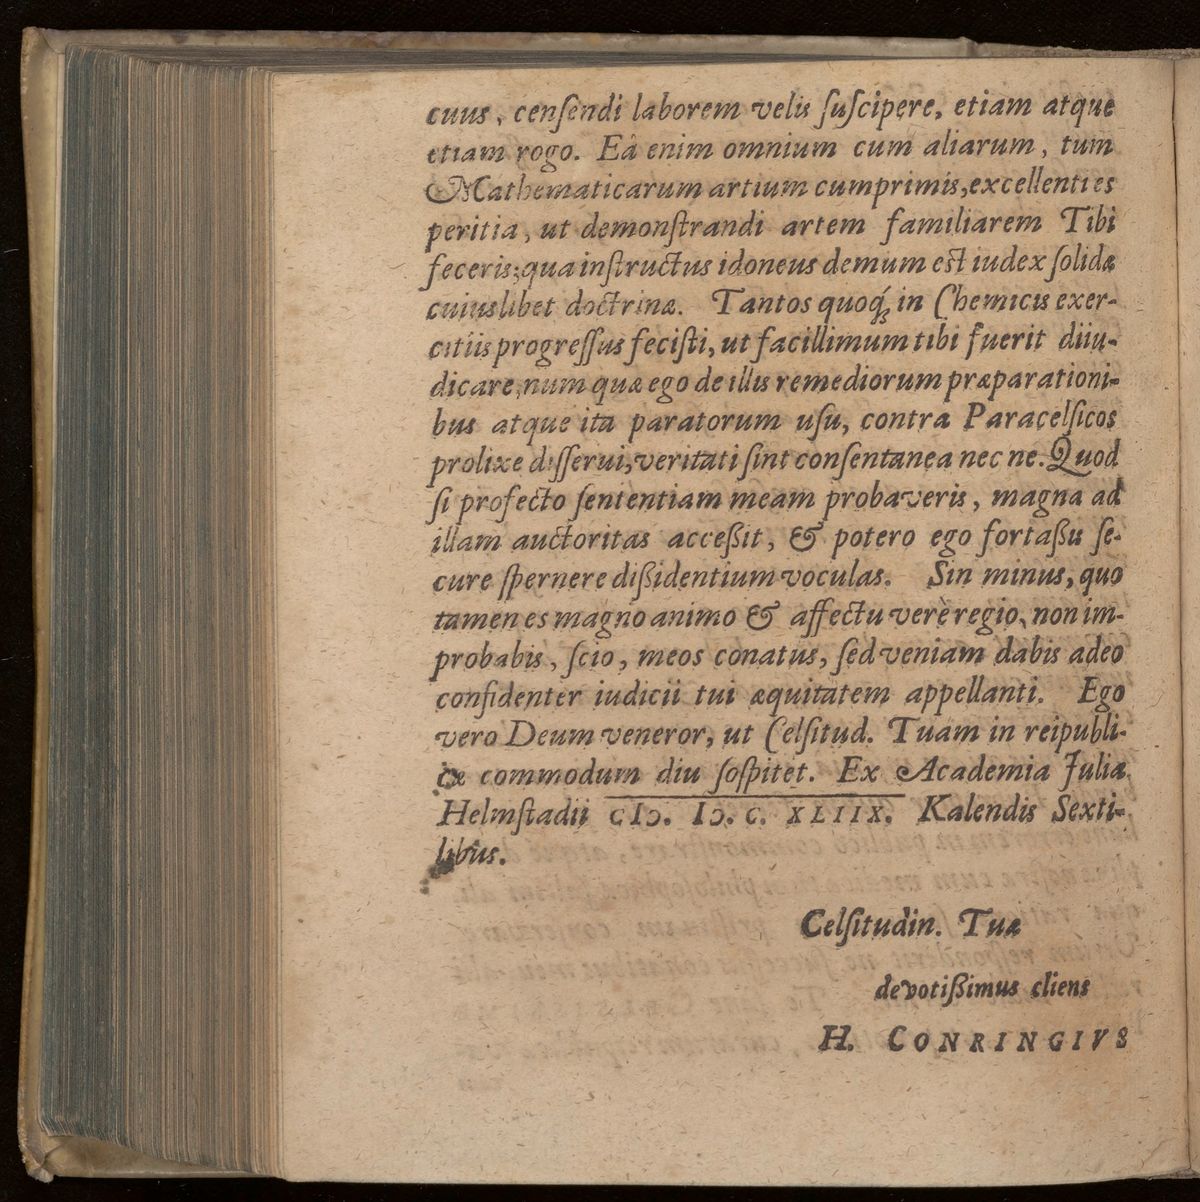 cuus, cenſendi laborem velis ſuſcipere, etiam atque
etiam rogo. Eâ enim omnium cum aliarum, tum
Mathematicarum artium cumprimis, excellenti es
peritia, ut demonſtrandi artem familiarem Tibi
feceris; qua inſtructus idoneus demum est iudex ſolidæ
cuiuslibet doctrinæ. Tantos quoq́; in Chemicis exer-
citiis progreſſus feciſti, ut facillimum tibi fuerit diiu-
dicare, num quæ ego de illis remediorum præparationi-
bus atque ita paratorum uſu, contra Paracelſicos
prolixe diſſerui, veritati ſint conſentanea nec ne. Quod
ſi profecto ſententiam meam probaveris, magna ad
illam auctoritas acceßit, & potero ego fortaßis ſe-
cure ſpernere dißidentium voculas. Sin minus, quo
tamen es magno animo & affectu verè regio, non im-
probabis, ſcio, meos conatus, ſed veniam dabis adeo
confidenter iudicii tui æquitatem appellanti. Ego
vero Deum veneror, ut Celſitud. Tuam in reipubli-
cæ commodum diu ſoſpitet. Ex Academia Julia
Helmſtadii CIↃ. IↃ. C. XLIIX. Kalendis Sexti-
libus.
Celſitudin. Tuæ
devotißimus cliens
H. CONRINGIVS